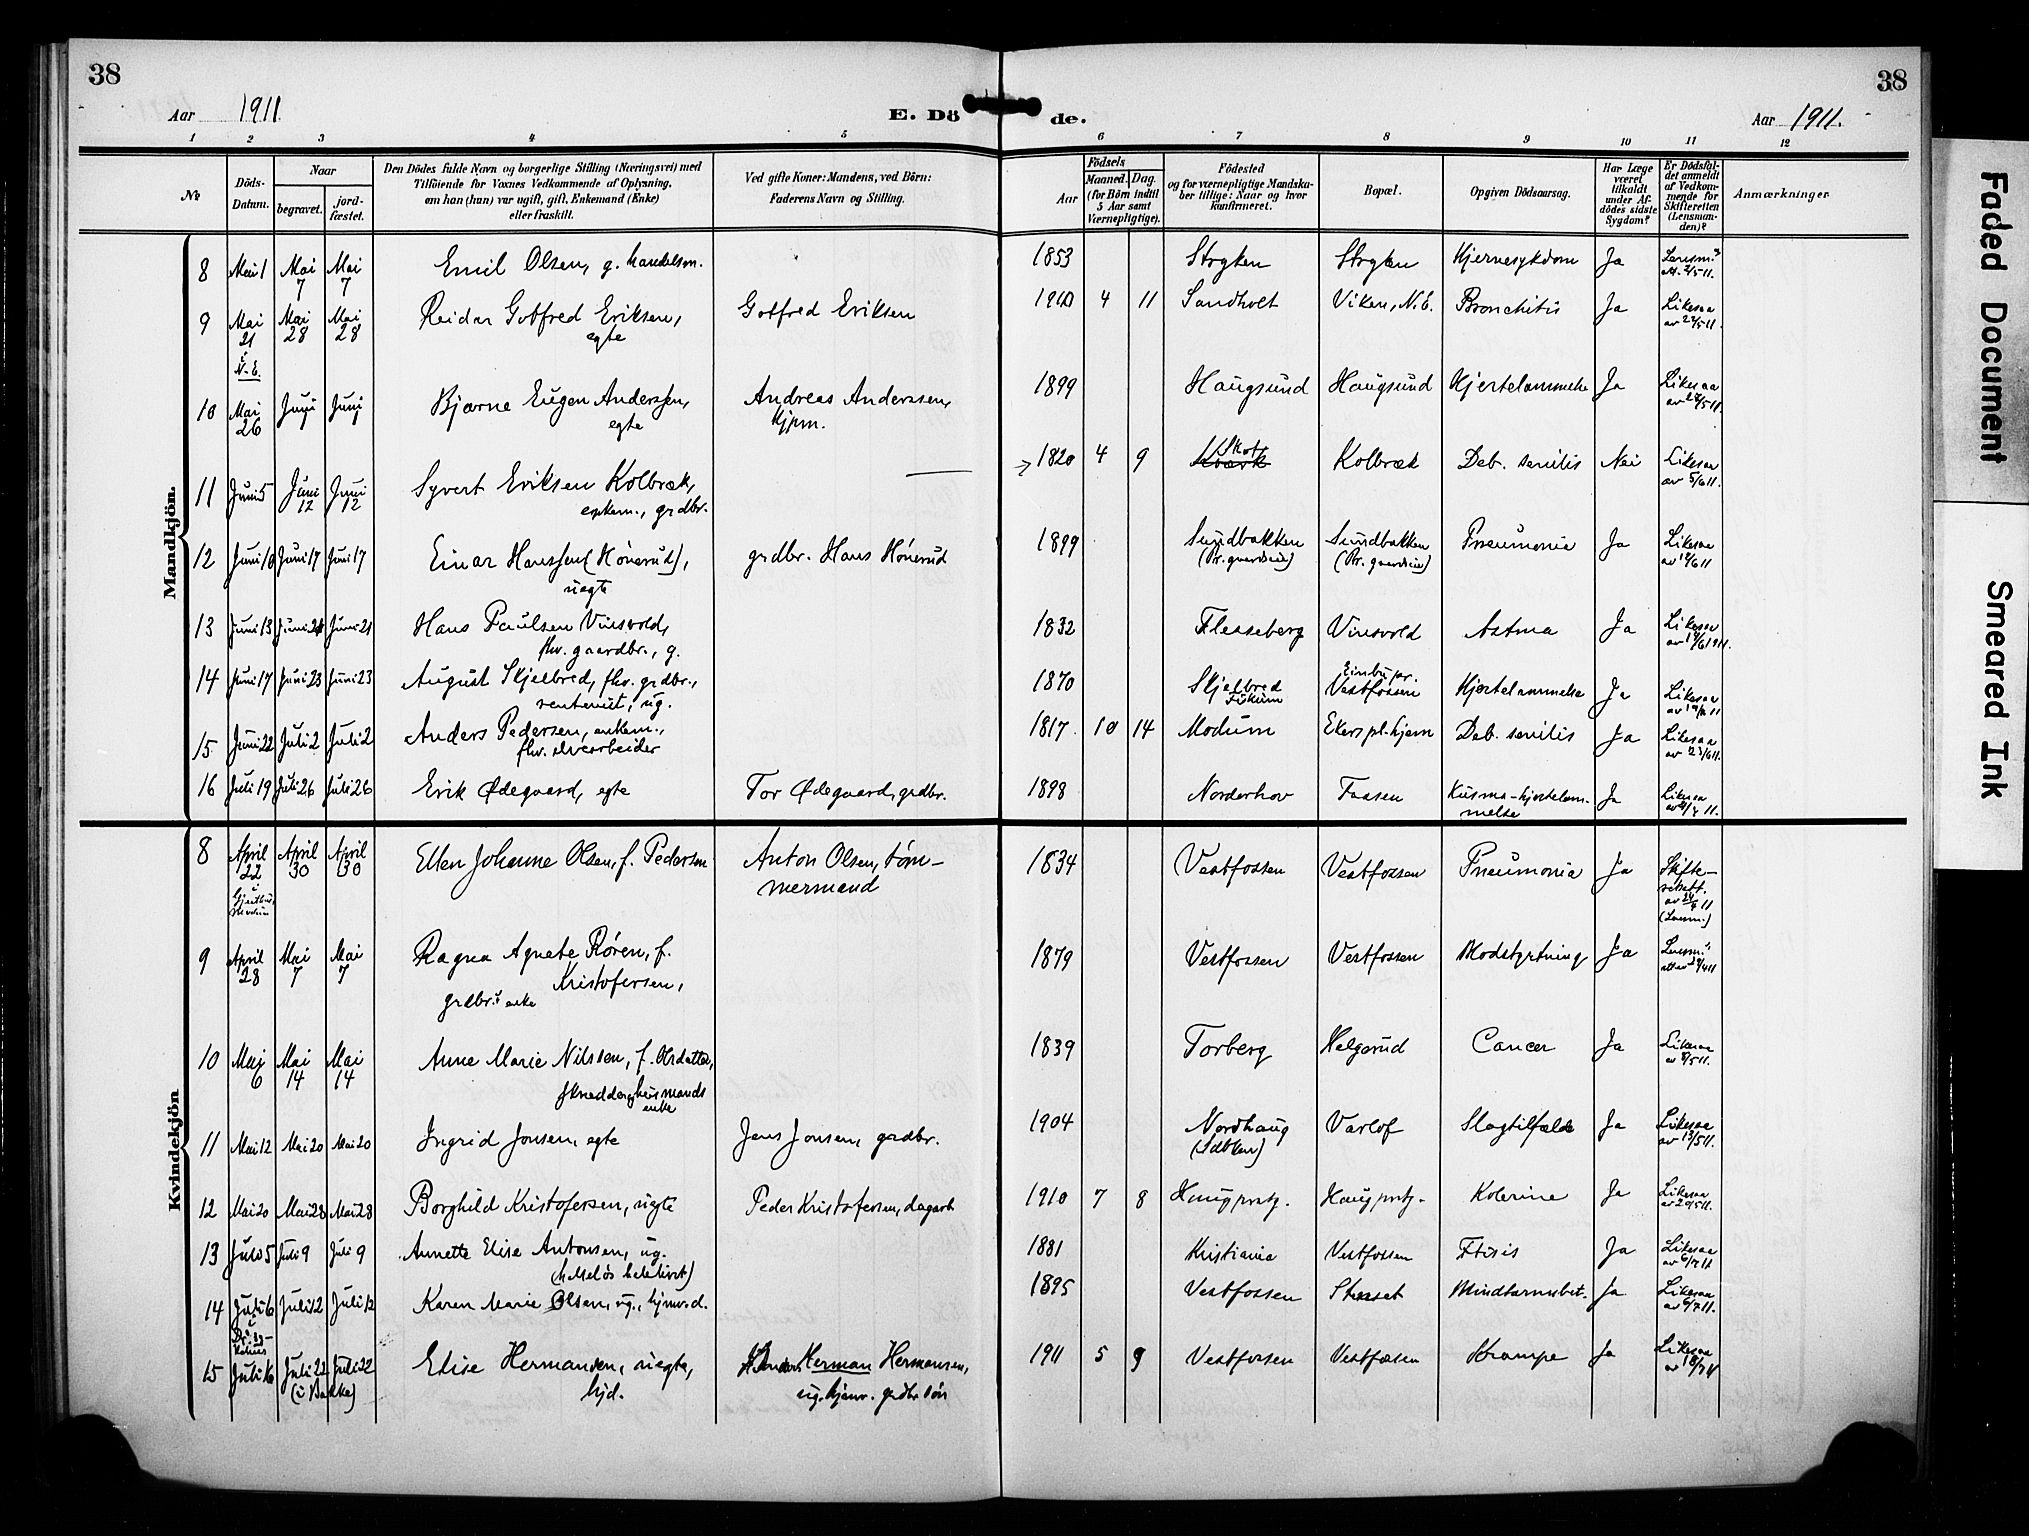 38
38
Aar 1911.
E. Dö de.
Aar 1911.
1 2 3 4 5 6 7 8 9 10 11 12
№
Döds-Datum.
Naar
begravet.
jord-fæstet.
Den Dödes fulde Navn og borgerlige Stilling (Næringsvei) med
Tilföiende for Voxnes Vedkommende af Oplysning,
om han (hun) var ugift, gift, Enkemand (Enke)
eller fraskilt.
Ved gifte Koner: Mandens, ved Börn:
Faderens Navn og Stilling.
Födsels
Aar
Maaned. Dag.
(for Börn indtil
5 Aar samt
Værnepligtige).
Födested
og for værnepligtige Mandska-
ber tillige: Naar og hvor
konfirmeret.
Bopæl.
Opgiven Dödsaarsag.
Har Læge
været
tilkaldt
under Af-
dödes sidste
Sygdom?
Er Dödsfal-
det anmeldt
af Vedkom-
mende for
Skifteretten
(Lensman-
den)?
Anmærkninger
Mandkjön.
8 Mai 1 Mai 7 Mai 7 Emil Olsen, g. handelsm. 1853 Stryken Stryken Hjernesykdom Ja
9 Mai 21 i N.E. Mai 28 Mai 28 Reidar Gotfred Eriksen, egte Gotfred Eriksen 1910 4 11 Sandholt Viken, N.E. Bronchitis Ja Likesaa av 22/5 11.
10 Mai 26 Juni Juni Bjarne Eugen Anderssen, egte Andreas Anderssen, kjpm. 1899 Haugsund Haugsund Hjertelammelse Ja Likesaa
11 Juni 5 Juni 12 Juni 12 Syvert Eriksen Kolbræk, enkem., grdbr. 1820 4 9 Skot Kolbræk Deb. senilis Nei Likesaa av 5/6 11.
12 Juni 10 Juni 17 Juni 17 Einar Hanssen (Hönerud), uegte grdbr. Hans Hönerud 1899 Sundbakken Sundbakken Pneumonia Ja Likesaa
13 Juni 13 Juni 21 Juni 21 Hans Paulsen Vinsvold, fhv. gaardbr., g. 1832 Flesseberg Vinsvold Astma Ja Likesaa
14 Juni 17 Juni 23 Juni 23 August Skjelbred, fhv. grdbr., rentenist, ug. 1870 Skjelbred Fiskum Vestfossen Hjertelammelse Ja Likesaa
15 Juni 22 Juli 2 Juli 2 Anders Pedersen, enkem., fhv. elvearbeider 1817 10 14 Modum Ekers pl.hjem Deb. senilis Ja Likesaa av 23/6 11.
16 Juli 19 Juli 26 Juli 26 Erik Ødegaard, egte Tor Ødegaard, grdbr. 1898 Norderhov Faasen Kusma-hjertelammelse Ja Likesaa
Kvindekjön
8 April 22 April 30 April 30 Ellen Johanne Olsen, f. Pedersen Anton Olsen, tömmermand 1834 Vestfossen Vestfossen Pneumonia Ja Skifterett.
9 April 28 Mai 7 Mai 7 Ragna Agnete Røren, f. Kristofersen, grdbr.s enke 1879 Vestfossen Vestfossen Modstyrtning Ja
10 Mai 6 Mai 14 Mai 14 Anne Marie Nilssen, f. Olsdatter, skrædderhusmands enke 1839 Torberg Helgerud Cancer Ja Likesaa
11 Mai 12 Mai 20 Mai 20 Ingrid Jonsen, egte Jens Jonsen, grdbr. 1904 Nordhaug Varlof Slagtilfælde Ja Likesaa av 13/5 11.
12 Mai 20 Mai 28 Mai 28 Borghild Kristofersen, uegte Peder Kristofersen, dagarb 1910 7 8 Haug prstg. Haug prstg. Kolerine Ja Likesaa
13 Juli 5 Juli 9 Juli 9 Annette Elise Antonsen, ug. 1881 Kristiania Vestfossen Ftisis Ja Likesaa av 6/7 11
14 Juli 6 Juli 12 Juli 12 Karen Marie Olsen, ug., 1895 Vestfossen Stenset Ja Likesaa
15 Juli 16 Juli 22 (i Bakke) Juli 22 Elise Hermansen, uegte, hjd. Herman Hermansen, ug. grdbr.sön 1911 5 9 Vestfossen Vestfossen Krampe Ja Likesaa av 18/7 11
Faded Document
Smeared Ink